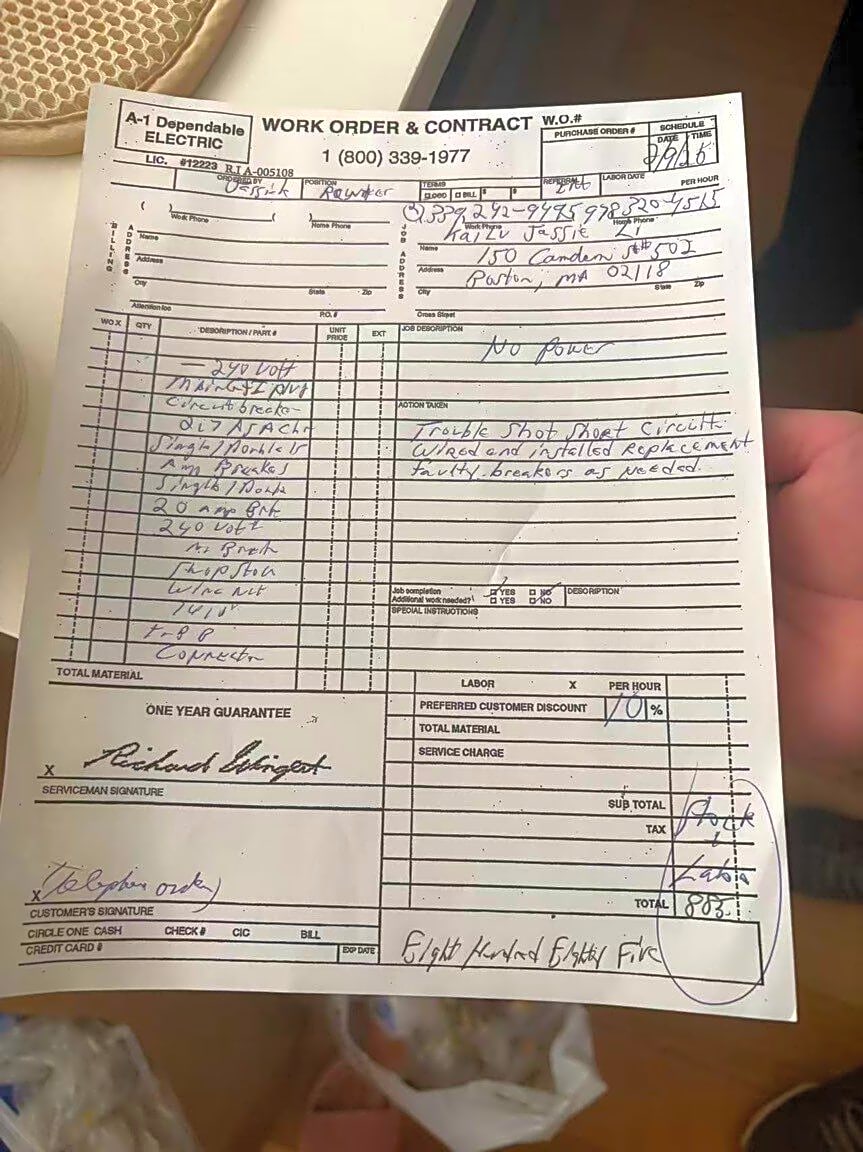 A-1 Dependable
ELECTRIC
WORK ORDER & CONTRACT
1 (800) 339-1977
W.O.#
PURCHASE ORDER #
SCHEDULE
DATE TIME
2/9/25
LIC. #12223 RIA-005108
ORDERED BY
POSITION
TERMS
C.O.D BILL
REFERRAL
LABOR DATE
PER HOUR
( ) Work Phone
( ) Home Phone
Work Phone
Home Phone
BILLING
ADDRESS
Name
Address
City
State
Zip
Attention to:
P.O. #
JOB
ADDRESS
Jassie Li
Name
150 Camden St #502
Address
Boston, MA 02118
City
State
Zip
Cross Street
WOX
QTY
DESCRIPTION / PART #
UNIT PRICE
EXT
240 Volt
Circuit breaker
Single/Double 15
Amp Breaker
Single/
20 Amp
240 Volt
Wire Nut
Connector
TOTAL MATERIAL
JOB DESCRIPTION
No Power
ACTION TAKEN
Trouble Shot Short Circuit
Wired and installed Replacement
faulty breakers as needed.
Job completion YES NO
Additional work needed? YES NO
DESCRIPTION
SPECIAL INSTRUCTIONS
LABOR X PER HOUR
PREFERRED CUSTOMER DISCOUNT 10 %
TOTAL MATERIAL
SERVICE CHARGE
SUB TOTAL
TAX
Stock
+
Labor
TOTAL 885
Eight Hundred Eighty Five
ONE YEAR GUARANTEE
X Richard Wingert
SERVICEMAN SIGNATURE
X (Telephone order)
CUSTOMER'S SIGNATURE
CIRCLE ONE CASH CHECK # C/C BILL
CREDIT CARD #
EXP DATE